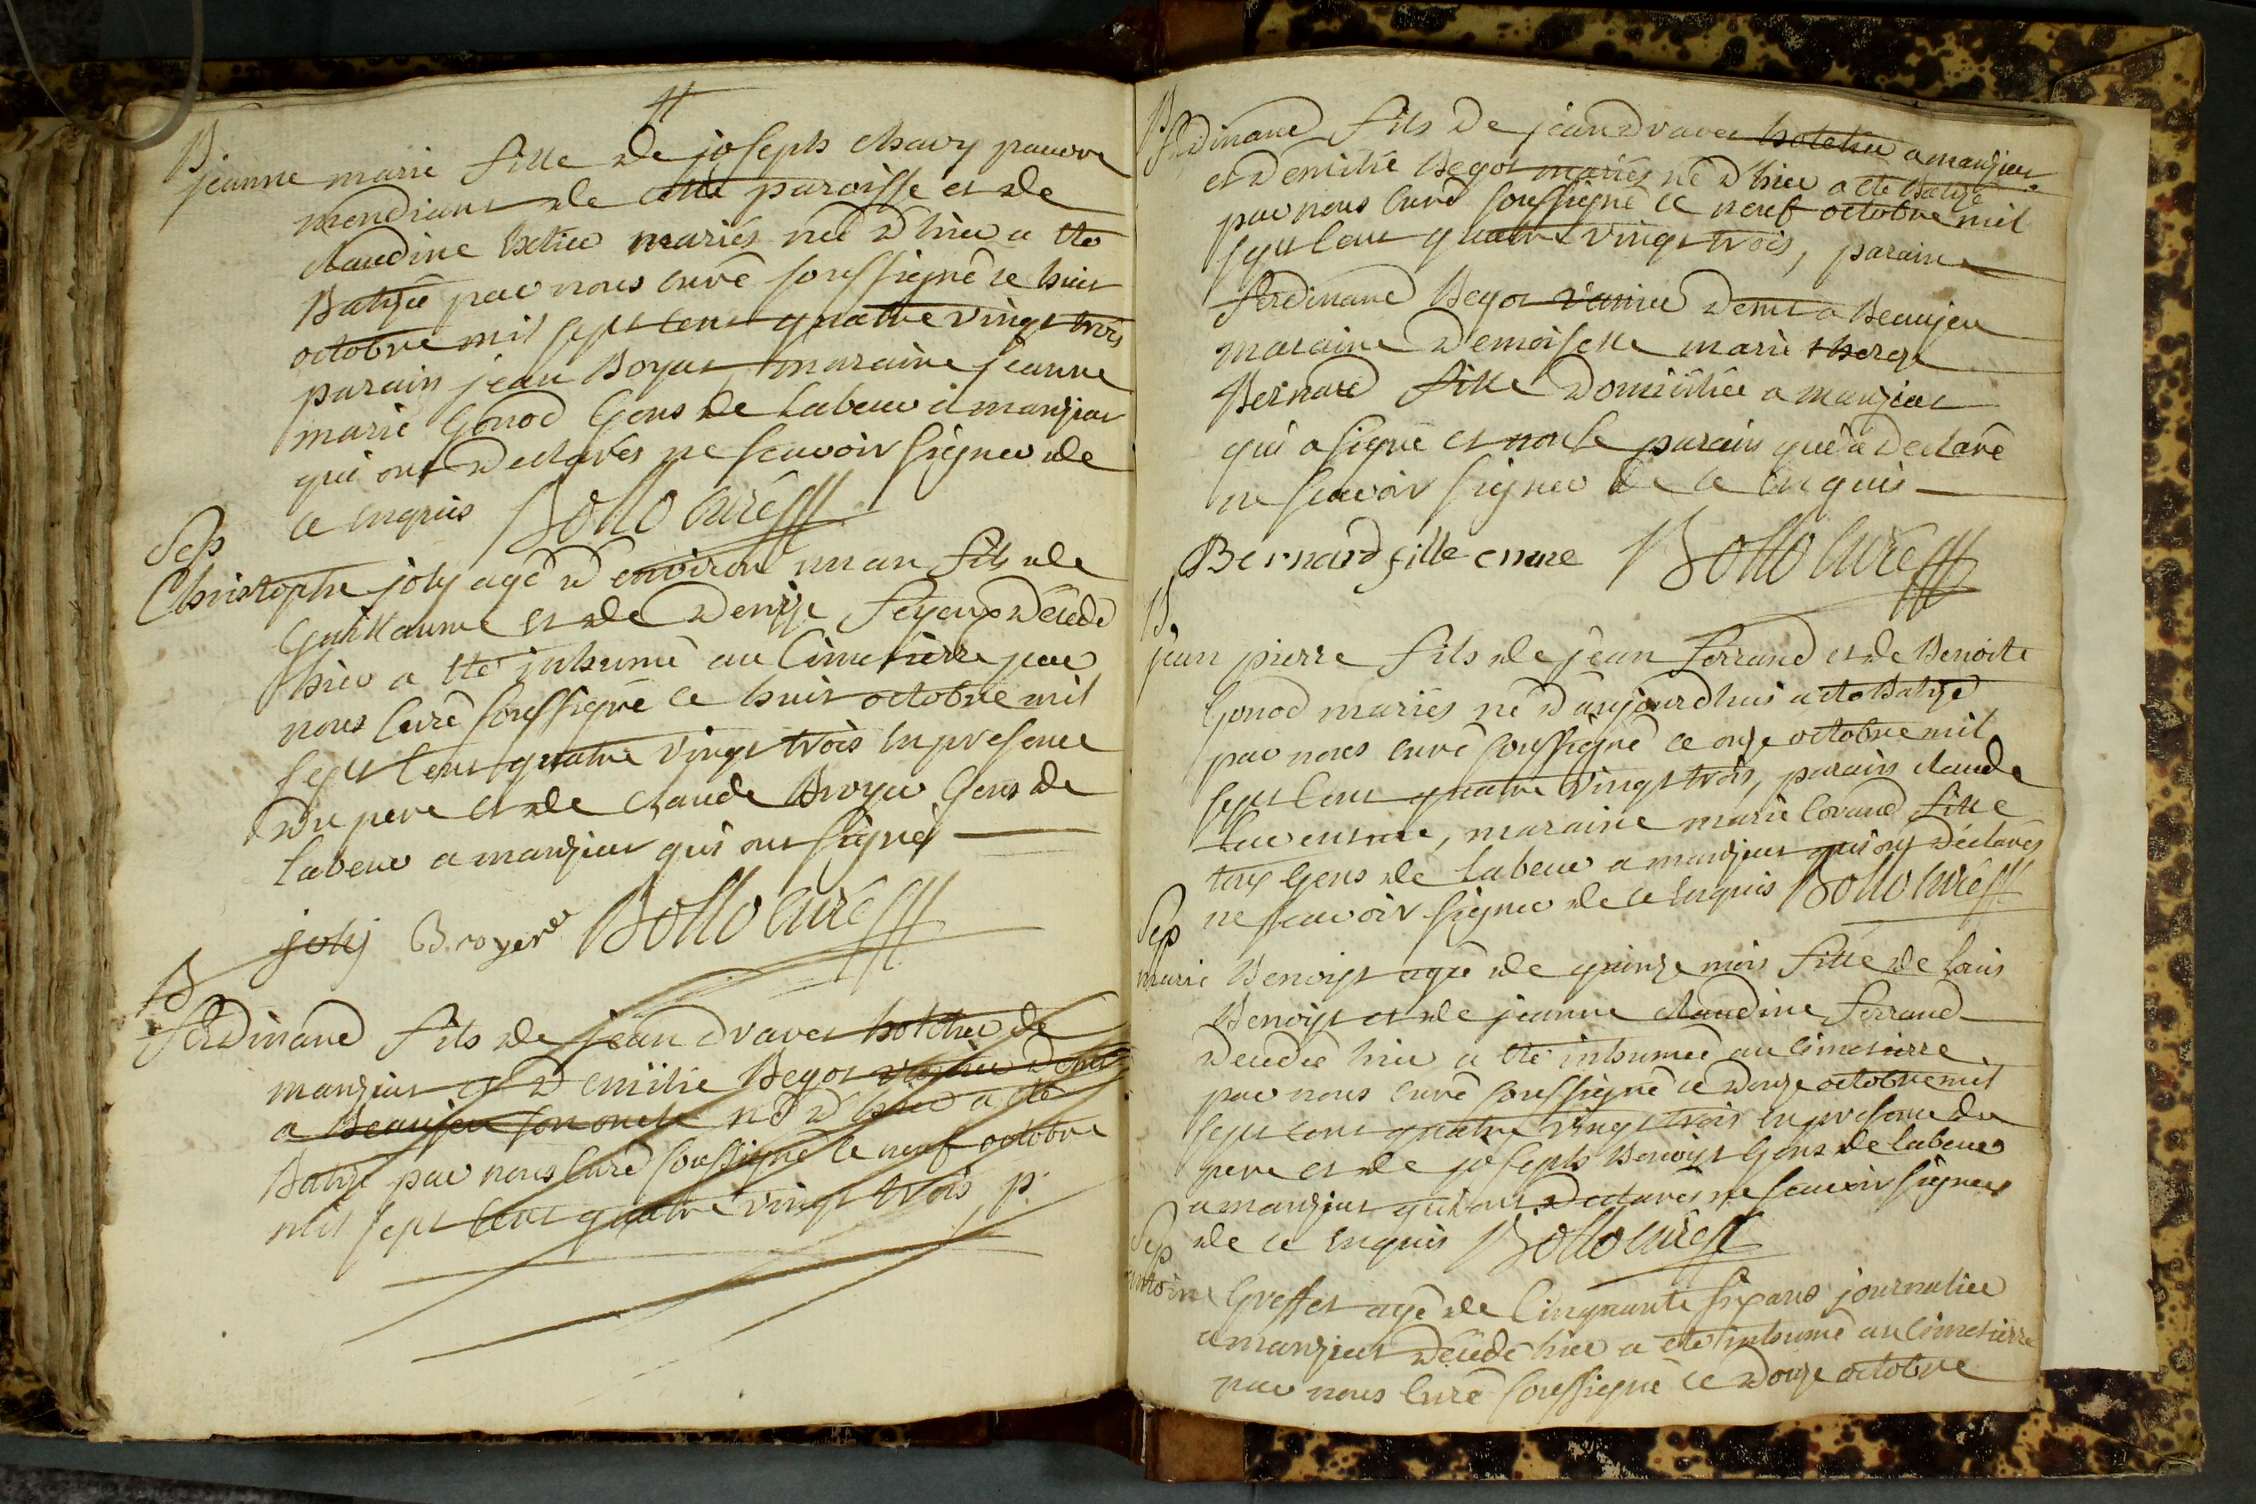 B
jeanne marie fille de joseph chavy pauvre
mendiant de cette paroisse et de
claudine mariés née d'hier a été
Batisée par nous curé soussigné ce huit
octobre mil sept cent quatre vingt trois
parain jean Boyat maraine jeanne
marie Gonod Gens de Labeur a manziat
qui ont declarés ne scavoir signer de
ce enquis Bollo curé
Sep
Christophe joly agé d'environ un an fils de
Guillaume et de Denise feyeux décédé
hier a été inhumé au Cimetierre par
nous Curé soussigné ce huit octobre mil
sept cent quatre vingt trois en presence
du pere et de Claude Broyer Gens de
labeur a manziat qui ont signés
joly Broyer Bollo curé
B
ferdinand fils de jean dravet hotelier de
manziat et d'emilie Begot Demt
a Beaujeu son oncle né d'hier a été
Batisé par nous Curé soussigné ce neuf octobre
mil sept cent quatre vingt trois p.
B
ferdinand fils de jean dravet hotelier a manziat
et d'emilie Begot mariés né d'hier a été Batisé
par nous curé soussigné ce neuf octobre mil
sept cent quatre vingt trois, parain
ferdinand Begot Demt a Beaujeu
maraine Demoiselle marie
Bernard fille Domiciliée a manziat
qui a signé et non le parain qui a declaré
ne scavoir signer de ce enquis
Bernard fille Bollo curé
B
jean pierre fils de jean ferrand et de Benoite
Gonod mariés né d'aujourdhui a été Batisé
par nous curé soussigné ce onze octobre mil
sept cent quatre vingt trois, parain claude
maraine marie fille
tous Gens de Labeur a manziat qui ont déclarés
ne scavoir signer de ce enquis Bollo curé
Sep
marie Benoist agée de quinze mois fille de Louis
Benoist et de jeanne claudine ferrand
decedée hier a été inhumée au cimetierre
par nous curé soussigné ce douze octobre mil
sept cent quatre vingt trois en presence du
pere et de joseph Benoist Gens de labeur
a manziat qui ont declarés ne scavoir signer
de ce enquis Bollo curé
Sep
antoine Greffet agé de Cinquante six ans journalier
a manziat décédé hier a été inhumé au cimetierre
par nous Curé soussigné ce douze octobre